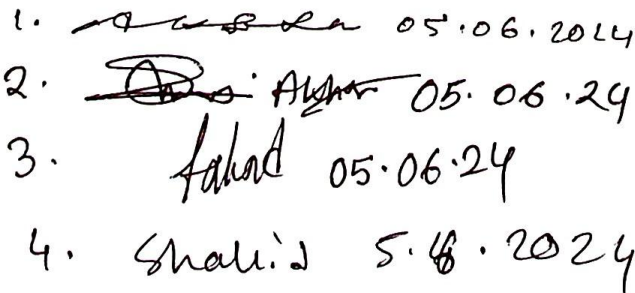 1. 05.06.2024
2. 05.06.24
3. fahad 05.06.24
4. Shahid 5.6.2024